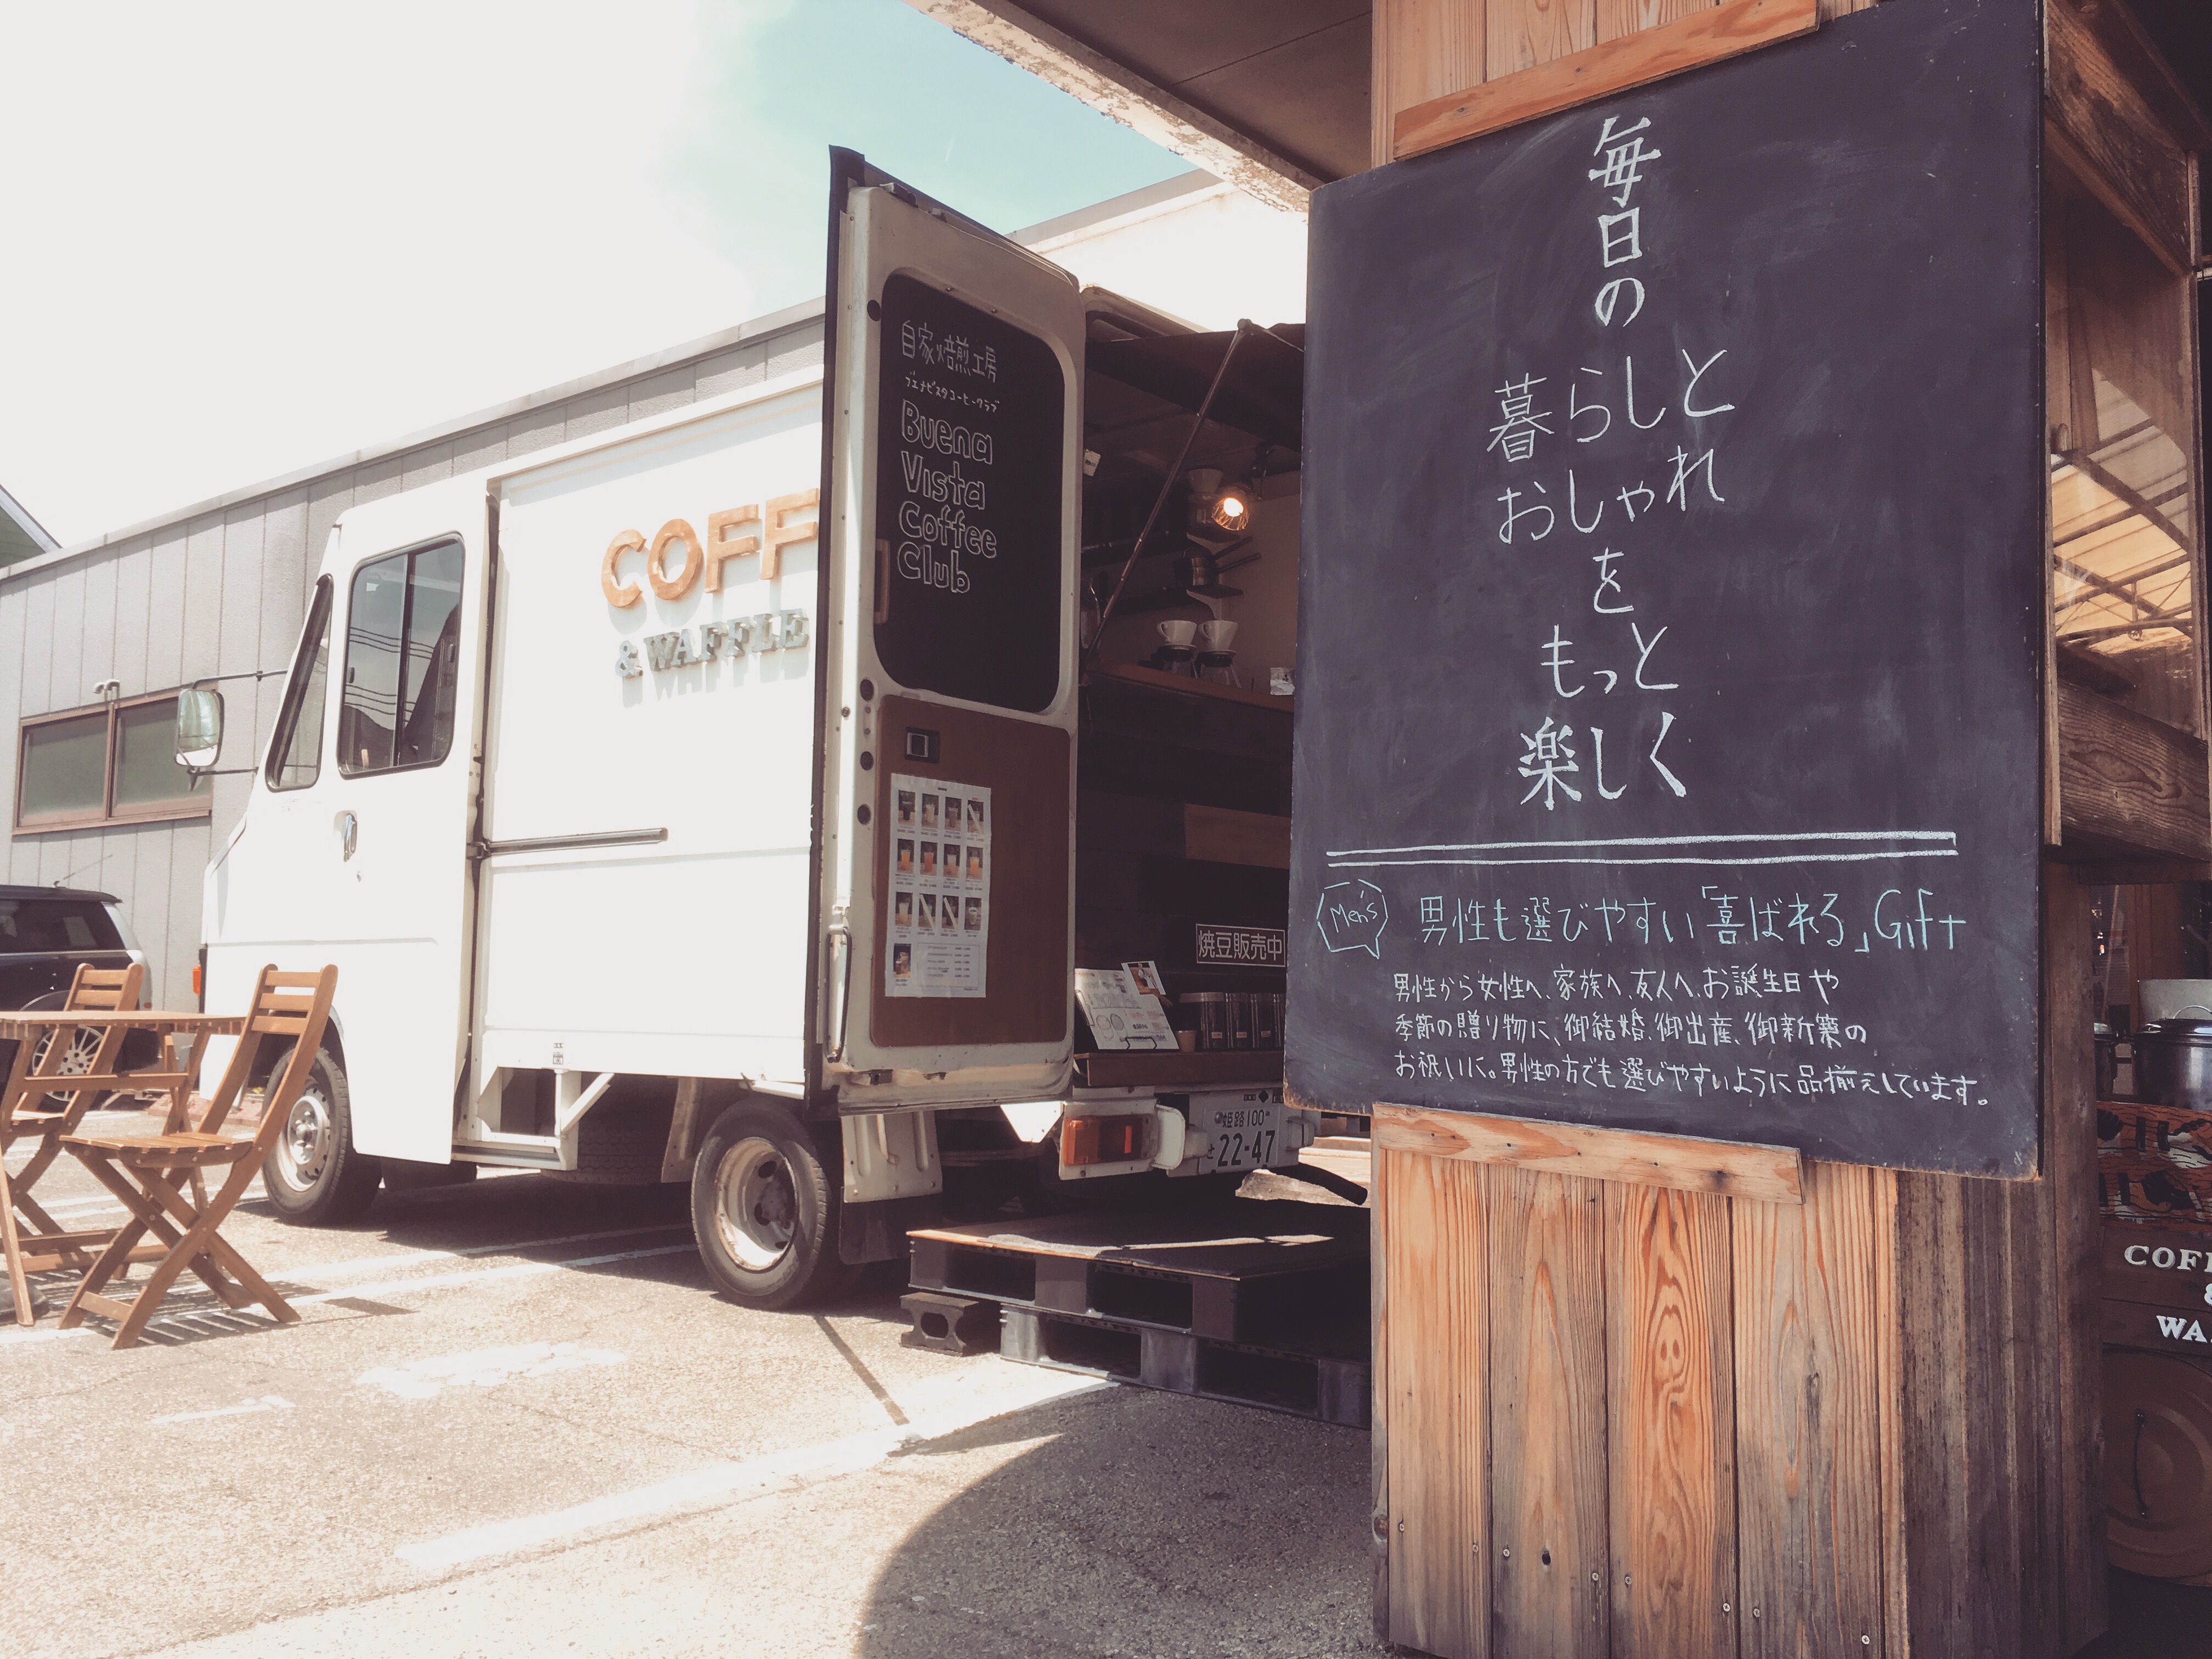 COFF
& WAFFLE
自家焙煎工房
ブエナビスタコーヒークラブ
Buena
Vista
Coffee
Club
焼豆販売中
姫路 100
さ 22-47
毎日の
暮らしと
おしゃれ
を
もっと
楽しく
Men's
男性も選びやすい「喜ばれる」Gift
男性から女性へ、家族へ、友人へ、お誕生日や
季節の贈り物に、御結婚、御出産、御新築の
お祝いに。男性の方でも選びやすいように品揃えしています。
COF
&
WA